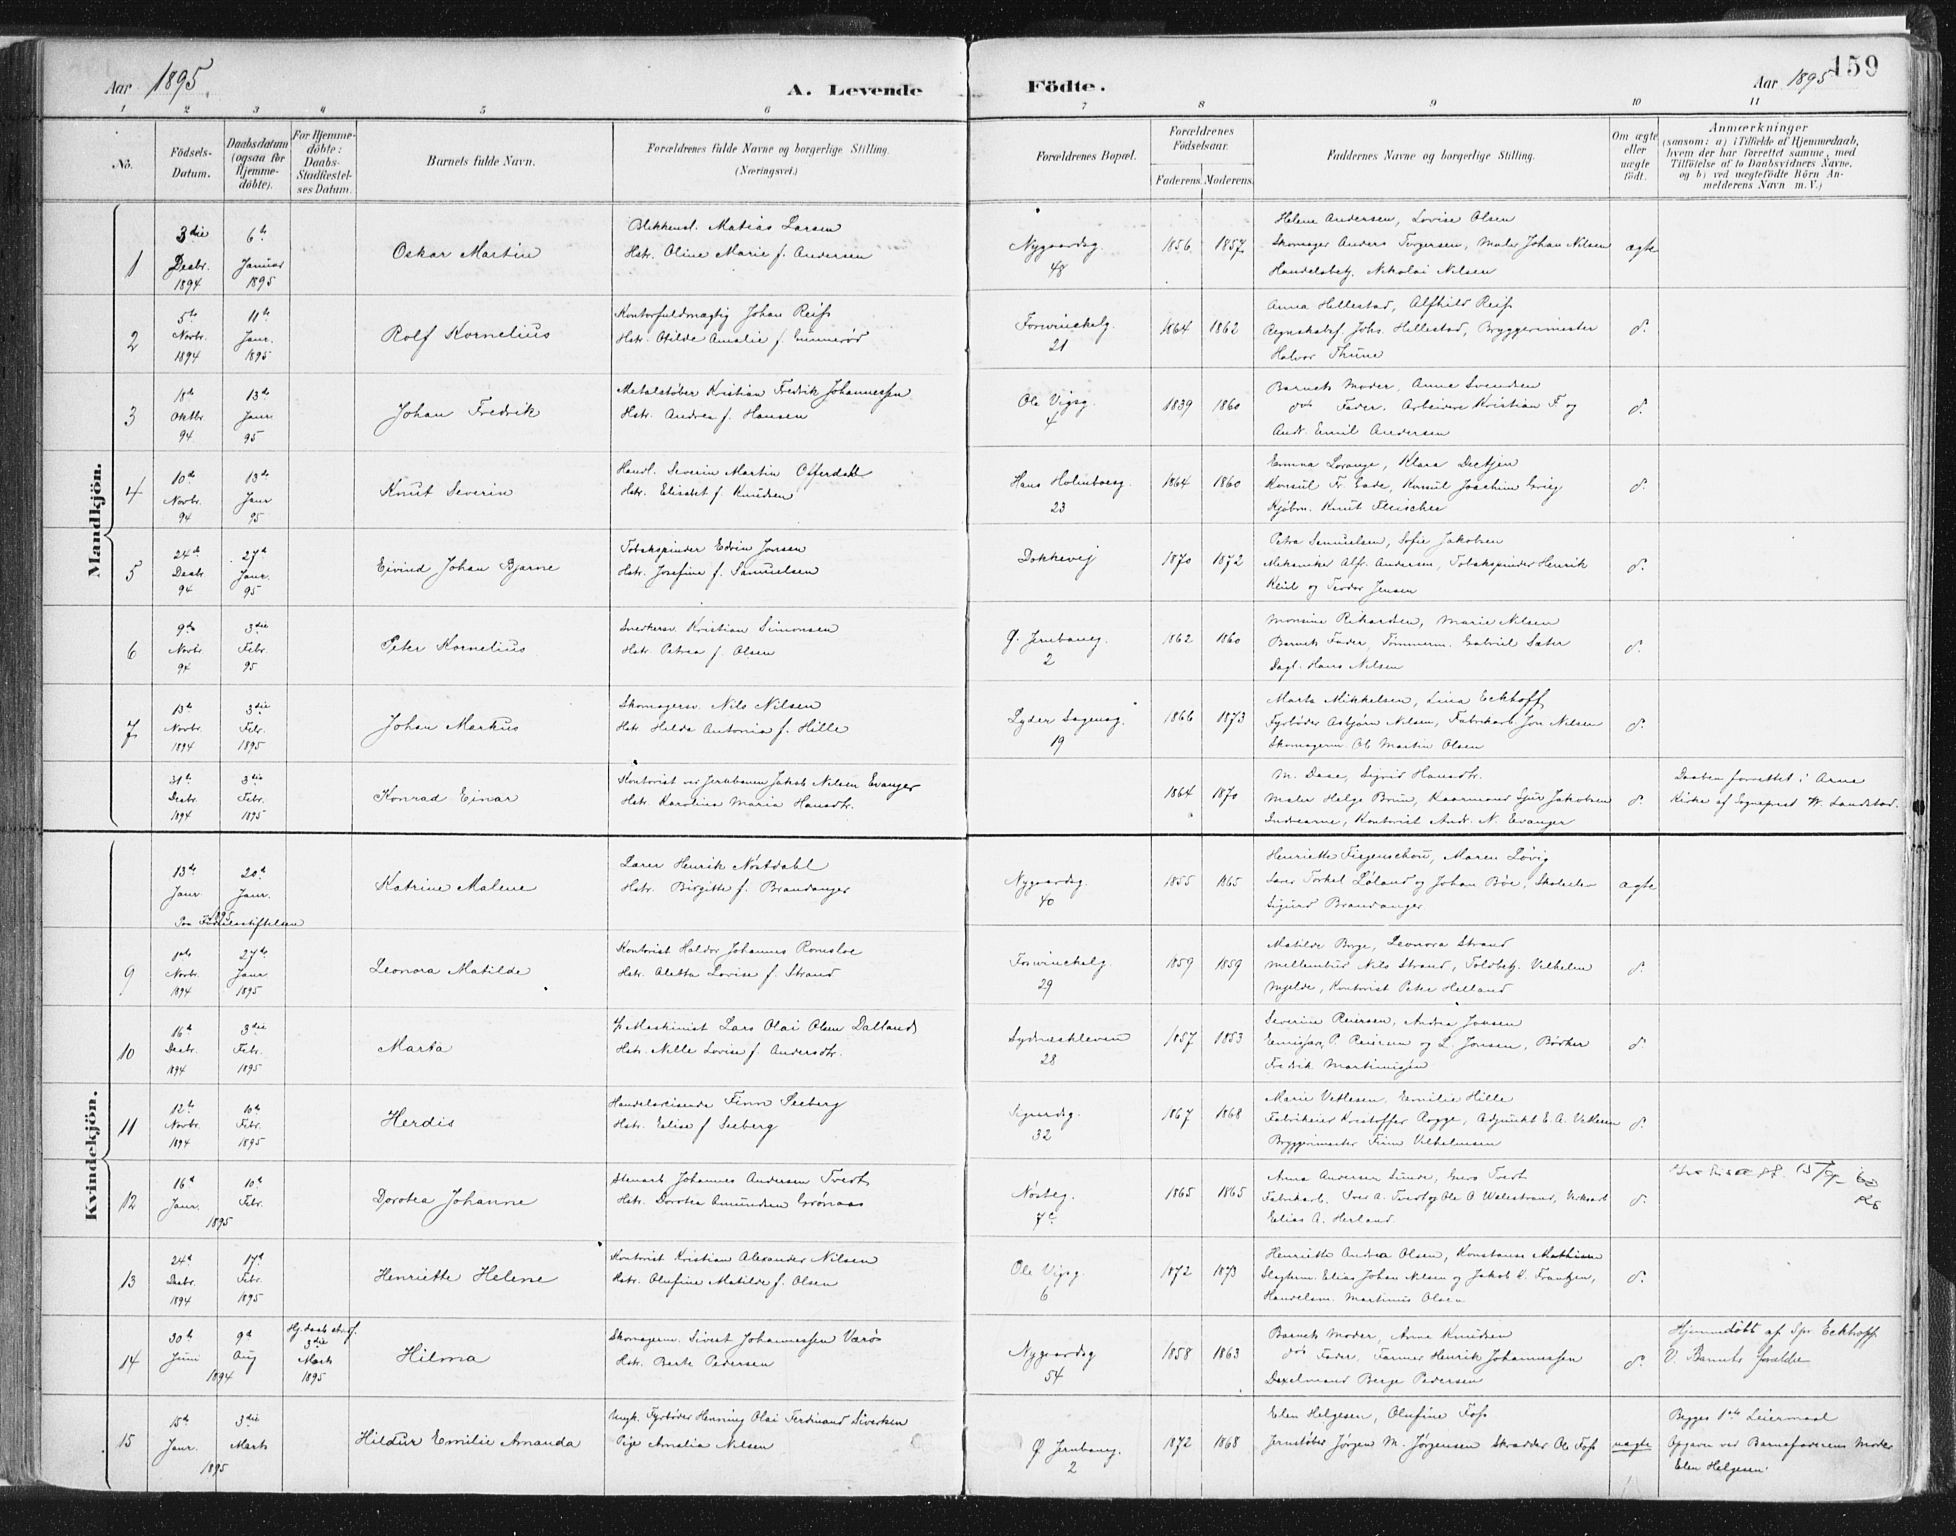 159
Aar 1895.
A. Levende Födte.
Aar 1895
1 2 3 4 5 6 7 8 9 10 11
No.
Födsels-Datum.
Daabsdatum (ogsaa for Hjemme-döbte).
For Hjemme-döbte: Daabs-Stadfæstel-ses Datum.
Barnets fulde Navn.
Forældrenes fulde Navne og borgerlige Stilling.
(Næringsvei.)
Forældrenes Bopæl.
Forældrenes Födselsaar.
Faderens. Moderens.
Faddernes Navne og borgerlige Stilling.
Om ægte eller uægte födt.
Anmærkninger
(saasom: a) i Tilfælde af Hjemmedaab, hvem der har forrettet samme, med Tilföielse af to Daabsvidners Navne, og b) ved uægtefödte Börn An-melderens Navn m. V.)
Mandkjön.
1 3die Decbr. 1894 6te Januar 1895 Oskar Martin
Blikkensl. Matias Larsen
Hstr. Oline Marie f. Andersen
Nygaardsg. 48 1856 1857
Helene Andersen, Lovise Olsen
Skomager Anders Torgersen, Maler Johan Nilsen
Handelsbetj. Nikolai Nilsen
ægte
2 5te Novbr. 1894 11te Janr. 1895 Rolf Kornelius
Kontorfuldmægtig Johan Reifs
Hstr. Amalie f. Gunnerød
21 1864 1862
Anna Hellestad, Alfhild Reifs
Johs. Hellestad, Bryggerimester
Halvor Thune
d.
3 18de Oktbr. 94 13de Janr. 95 Johan Fredrik
Metalstøber Kristian Fredrik Johannessen
Hstr. Andrea f. Hansen
Ole Vigsg. 4 1839 1860
Barnets Moder, Anne Svendsen
do Fader. Arbeidere Kristian F og
Andr. Emil Andersen
d.
4 10de Novbr. 94 13de Janr 95 Knut Severin
Handl. Severin Martin Offerdahl
Hstr. Elisabet f. Knudsen
Hans Holmboesg. 23 1864 1860
Emma Lorange, Klara Dietjen
Konsul Fr. Gade, Konsul Joachim Grieg
Kjøbm. Knut Fleischer
d.
5 24de Decbr 94 27de Janr. 95 Eivind Johan Bjarne
Tobakspinder Edvin Jensen
Hstr. Josefine f. Samuelsen
Dokkevej 1870 1872
Petra Samuelsen, Sofie Jakobsen
Mekaniker Alfr. Andersen, Tobakspinder Henrik
Keül og Teodor Jensen
d.
6 9de Novbr. 94 3die Febr. 95 Peter Kornelius
Snedkersv. Kristian Simonsen
Hstr. Petrea f. Olsen
Ø. Jernbaneg. 2 1862 1860
Monsine Rikardsen, Marie Nilsen
Barnets Fader, Tømmerm. Gabriel Sæter
Dagl. Hans Nilsen
d.
7 13de Novbr. 1894 3die Febr. 1895 Johan Markus
Skomagersv. Nils Nilsen
Hstr. Hilda Antonia f. Hille
Lyder Sagensg. 19 1866 1873
Marta Mikkelsen, Lina Eckhoff
Fyrbøder Asbjørn Nilsen, Fabrikarb. Jon Nilsen
Skomagerm. Ole Martin Olsen
d.
31te Decbr. 1894 3die Febr. 1895 Konrad Einar
Kontorist ved Jernbanen Jakob Nilsen Evanger
Hstr. Karolina Maria Hansdtr.
1864 1870
M. Dase, Sigrid Hansdtr.
Maler Helge Brun, Kaarmand Sjur Jakobsen
Indrearne, Kontorist Andr. N. Evanger
d.
Daaben forrettet i Arne
Kirke af Sogneprest W. Landstad.
Kvindekjön.
13de Janr. 20de Janr. 1895 Katrine Malene
Paa Fødselsstiftelsen
Lærer Henrik Nøstdahl
Hstr. Birgitte f. Brandanger
Nygaardsg. 40 1855 1865
Henriette Firgenschou, Maren Løvig
Lærer Torkel Løland og Johan Bøe, Skoleelev
Sigurd Brandanger
ægte
9 1ste Novbr. 1894 27de Janr 1895 Leonora Matilde
Kontorist Haldor Johannes Romsloe
Hstr. Aletta Lovise f. Strand
29 1859 1859
Matilde Borge, Leonora Strand
Nils Strand, Toldbetj. Vilhelm
Mjelde, Kontorist Peter Helland
d.
10 16de Decbr. 1894 3die Febr. 1895 Marta
Maskinist Lars Olai Olsen Dalland
Hstr. Nille Lovise f. Andersdtr.
Sydneskleven 28 1857 1853
Severine Reiersen, Andrea Jonsen
P. Reiersen og L. Jonsen, Bødker
Fredrik Martinussen
d
11 12te Novbr. 1894 10de Febr. 1895 Herdis
Handelsreisende Finn Seeberg
Hstr. Elise f Seeberg
Sigurdsg. 32 1867 1868
Marie Vetlesen, Emilie Hille
Fabrikeier Kristoffer Rogge, Adjunkt E. A. Vetlesen
Bryggerimester Finn Vilhelmsen
d
12 16de Janr. 10de Febr. 1895 Dorotea Johanne
Stenarb. Johannes Andersen Tveit
Hstr. Dorotea Amundsen Grønaas
Nøsteg. 7c 1865 1865
Anna Andersen Lunde, Guro Tveit
Fabrikarb. Iver A. Tveit og Ole O Welestrand, Verksarb
Elias A. Herland.
d.
13 24de Decbr. 1894 17de Febr. 1895 Henriette Helene
Kontorist Kristian Alexander Nilsen
Hstr. Olufine Matilde f. Olsen
Ole Vigsg. 6 1872 1873
Henriette Andrea Olsen, Konstanse Mathisen
Slagterm. Elias Johan Nilsen og Jakob K. Frantzen,
Handelsm. Martinus Olsen
d.
14 30te Juni 9de Aug 1894 Hj. daab stadf. 3die Marts 1895 Hilma
Skomagerm. Sivert Johannessen Værø
Hstr. Berte Pedersen
Nygaardsg 54 1858 1863
Barnets Moder, Anna Knudsen
do Fader, Farmer Henrik Johannessen
Dexelmand Berge Pedersen
d.
Hjemmedøbt af Spr Eckhoff
V. Barnets Forældre
15 15de Janr. 3die Marts 1895 Hildur Emilie Amanda
Ungk. Fyrbøder Henning Olai Ferdinand Sivertsen
Pige Amalia Nilsen
Ø Jernbaneg. 2 1872 1868
Elen Helgesen, Olufine Foss
Jernstøber Jørgen M. Jørgensen Skrædder Ole Foss
uægte
Begges 1ste Leiermaal
Opgaven ved Barnefaderens Moder
Elen Helgesen.